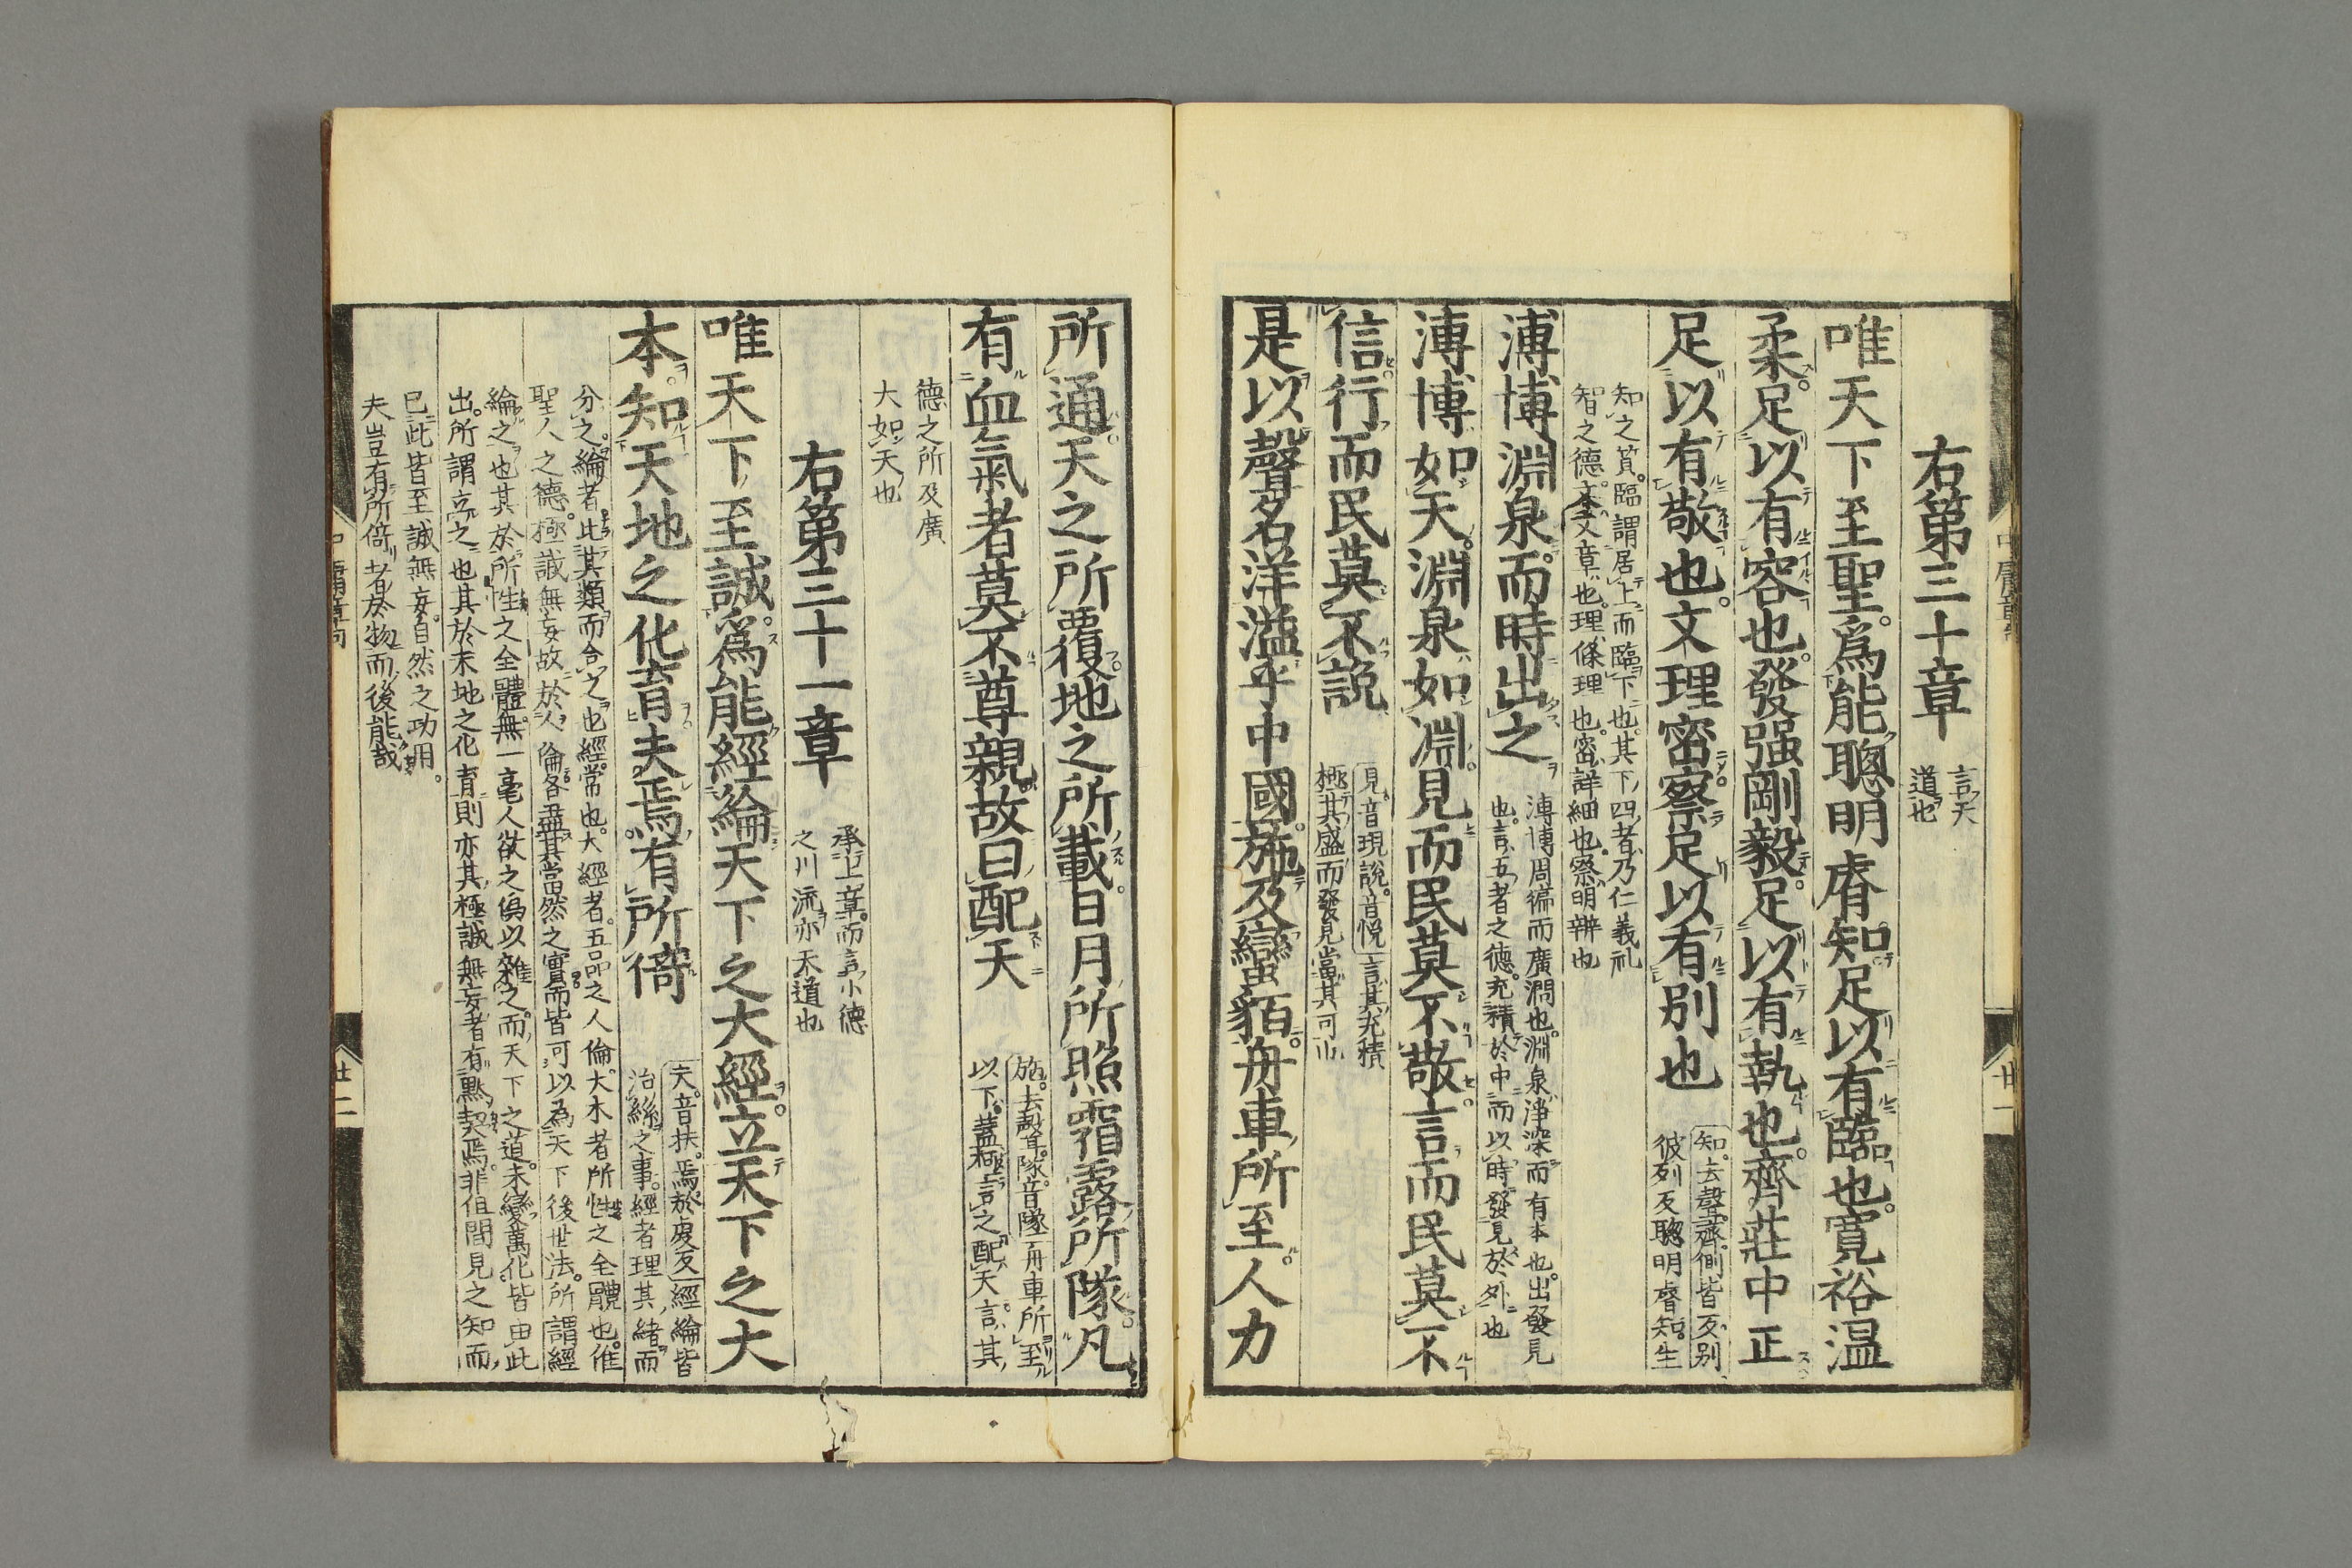 右第三十章
言天
道也
唯天下至聖爲能聰明睿知足以有臨也寬裕温
柔足以有容也發强剛毅足以有執也齊莊中正
足以有敬也文理密察足以有別也
知去聲齊側皆反別
彼列反聰明睿知生
知之質臨謂居上而臨下也其下四者乃仁義礼
智之德文文章也理條理也密詳細也察明辨也
溥博淵泉而時出之
溥博周徧而廣濶也淵泉淨深而有本也出發見
也言五者之德充積於中而以時發見於外也
溥博如天淵泉如淵見而民莫不敬言而民莫不
信行而民莫不說
見音現說音悅言其充積
極其盛而發見當其可也
是以聲名洋溢乎中國施及蠻貊舟車所至人力
所通天之所覆地之所載日月所照霜露所隊凡
有血氣者莫不尊親故曰配天
施去聲隊音隊舟車所至
以下蓋極言之配天言其
德之所及廣
大如天也
右第三十一章
承上章而言小德
之川流亦天道也
唯天下至誠爲能經綸天下之大經立天下之大
本知天地之化育夫焉有所倚
夫音扶焉於虔反經綸皆
治絲之事經者理其緒而
分之綸者比其類而合之也經常也大經者五品之人倫大本者所性之全體也惟
聖人之德極誠無妄故於人倫各盡其當然之實而皆可以為天下後世法所謂經
綸之也其於所性之全體無一毫人欲之偽以雜之而天下之道未變萬化皆由此
出所謂立之也其於天地之化育則亦其極誠無妄者有黙契焉非但聞見之知而
已此皆至誠無妄自然之功用
夫豈有所倚者於物而後能哉
中庸章句
廿一
廿二